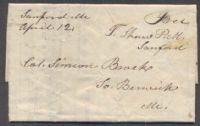 Sanford Me
April 12
Free
T. Shaw P.M.
Sanford
Col. Simeon
So. Berwick
Me.